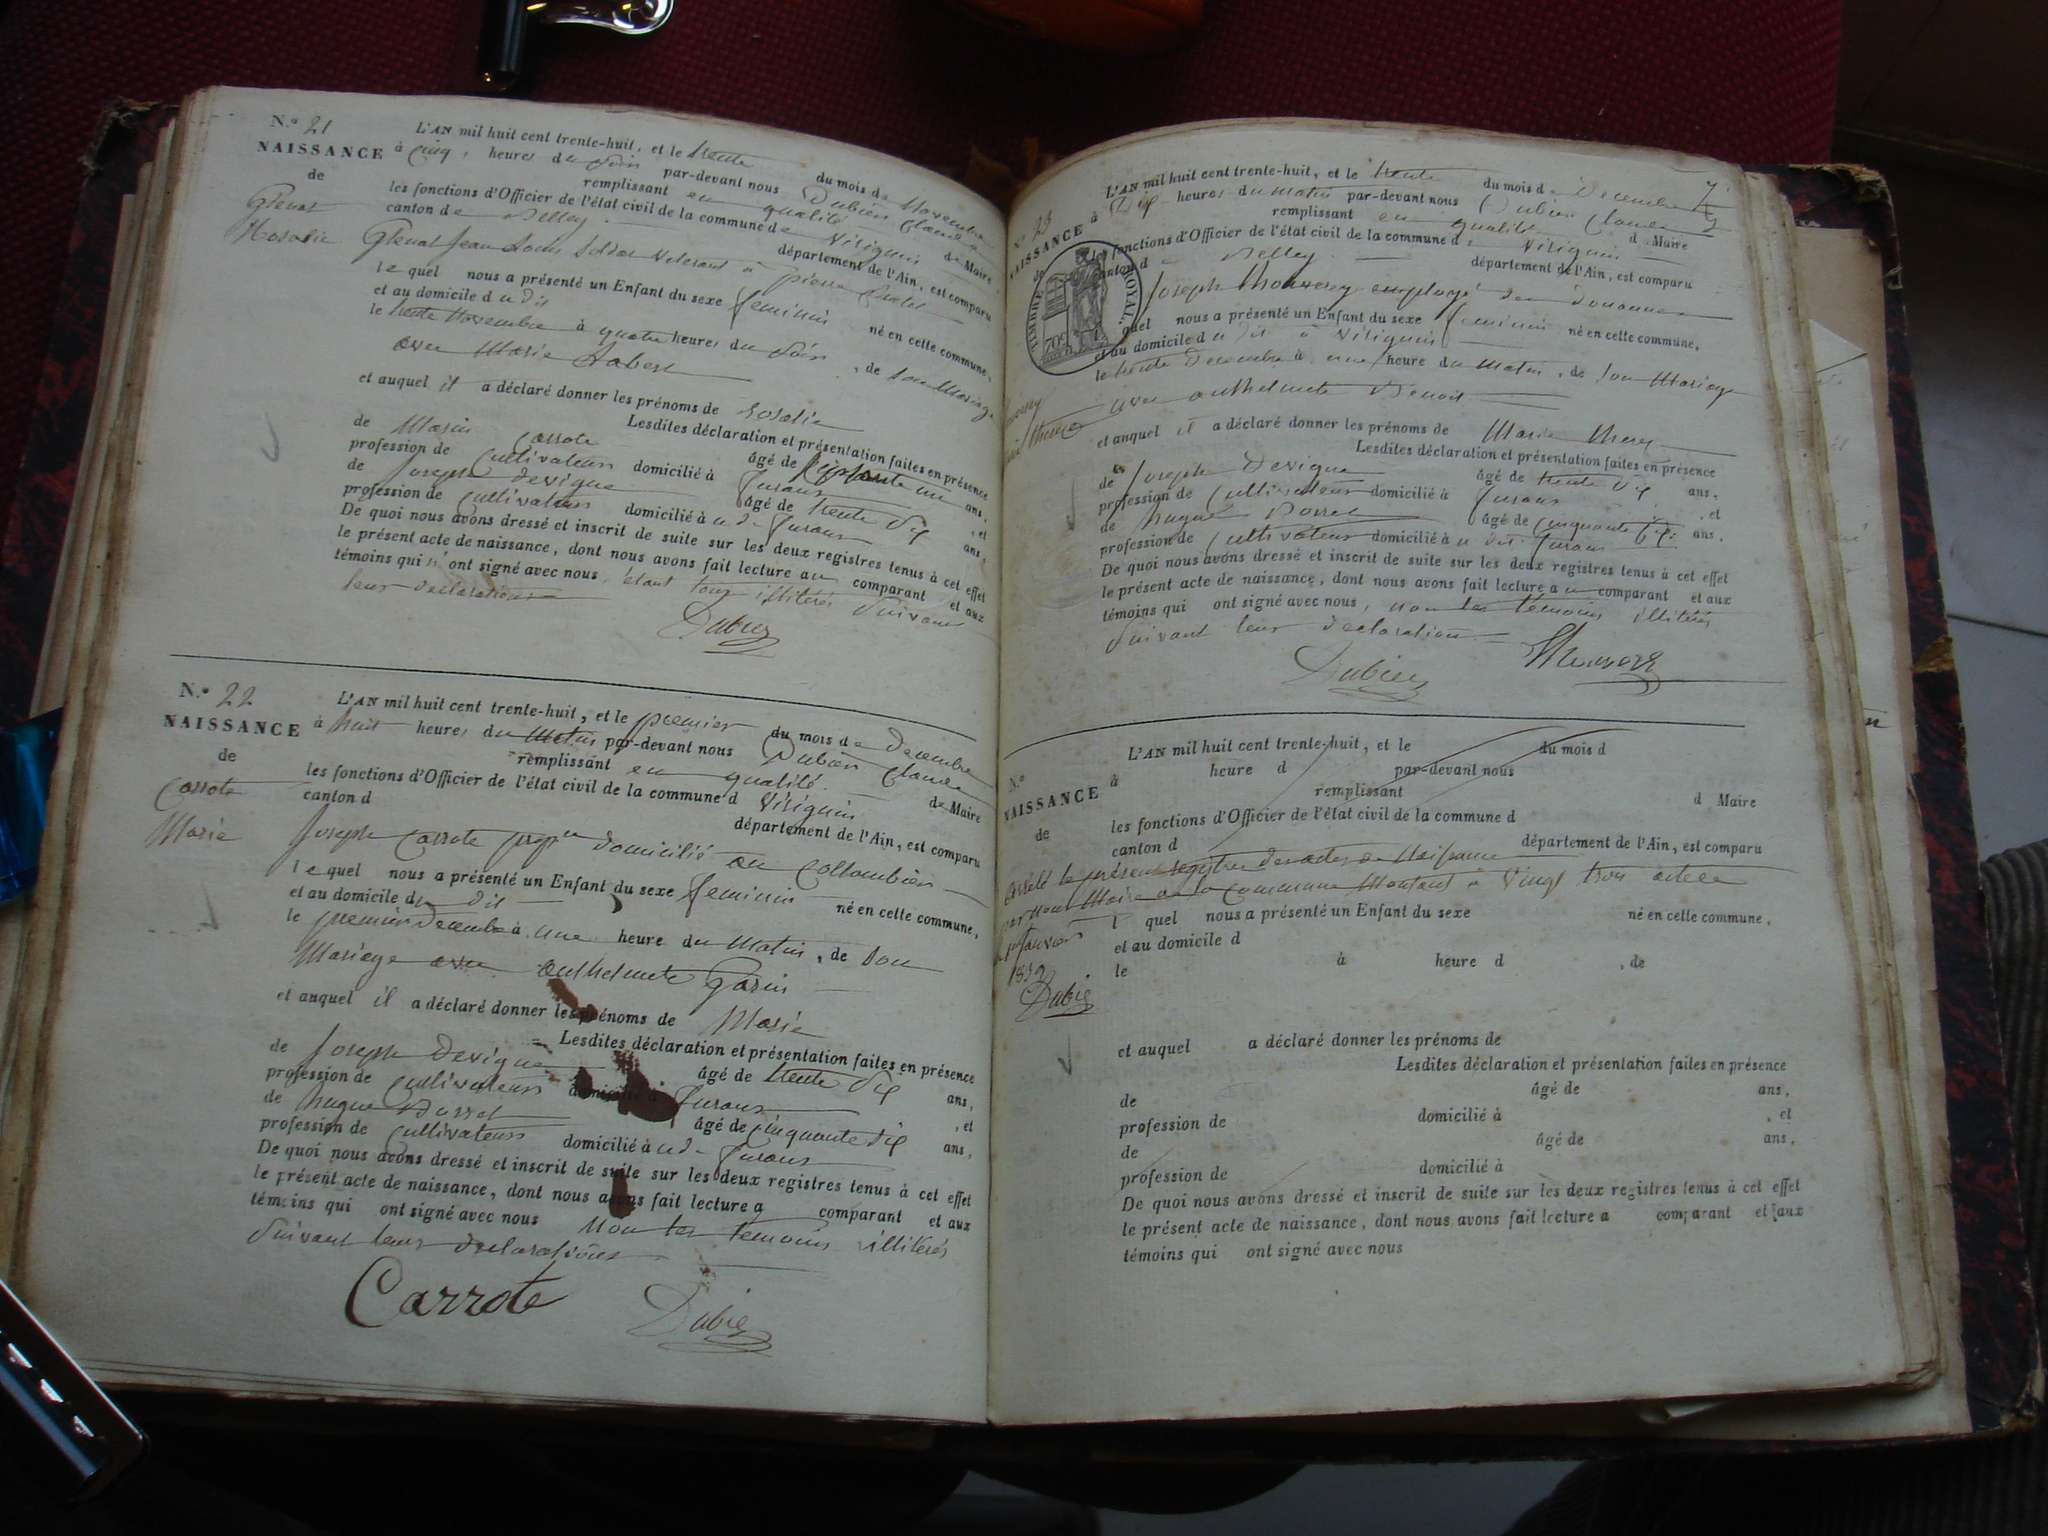 N.° 21
NAISSANCE
de
Glenat
Rosalie
L'AN mil huit cent trente-huit, et le trente du mois de Novembre
à cinq heures du soir par-devant nous Dubien Claude
remplissant en qualité de Maire
les fonctions d'Officier de l'état civil de la commune de Virignin
canton de Belley département de l'Ain, est comparu
Glenat Jean Louis soldat veterant à pierre Chatel
lequel nous a présenté un Enfant du sexe feminin né en cette commune,
et au domicile du dit
le trente Novembre à quatre heures du soir, de son Mariage
avec Marie Labert
et auquel il a déclaré donner les prénoms de rosalie
Lesdites déclaration et présentation faites en présence
de Marin Carrote âgé de ans,
profession de cultivateur domicilié à , et
de Joseph Devigne âgé de trente dix ans,
profession de cultivateur domicilié à
De quoi nous avons dressé et inscrit de suite sur les deux registres tenus à cet effet
le présent acte de naissance, dont nous avons fait lecture au comparant et aux
témoins qui n'ont signé avec nous, étant tous illitérés suivant
leur declarations
Dubien
N.° 22
NAISSANCE
de
Carrote
Marie
L'AN mil huit cent trente-huit, et le premier du mois de Decembre
à huit heures du Matin par-devant nous Dubien Claude
remplissant en qualité de Maire
les fonctions d'Officier de l'état civil de la commune d Virignin
canton d département de l'Ain, est comparu
Joseph Carrote domicilié au Collombier
lequel nous a présenté un Enfant du sexe feminin né en cette commune,
et au domicile du dit
le premier Decembre à une heure du Matin, de son
Mariage avec anthelmete Garin
et auquel il a déclaré donner les prénoms de Marie
Lesdites déclaration et présentation faites en présence
de Joseph Devigne âgé de trente dix ans,
profession de cultivateur domicilié à , et
de hugue âgé de cinquante dix ans,
profession de cultivateur domicilié à
De quoi nous avons dressé et inscrit de suite sur les deux registres tenus à cet effet
le présent acte de naissance, dont nous avons fait lecture a comparant et aux
témoins qui ont signé avec nous Non les temoins illitérés
suivant leurs declarations
Carrote Dubien
N.° 23
NAISSANCE
de
TIMBRE ROYAL
70c
L'AN mil huit cent trente-huit, et le trente du mois de Decembre
à Dix heures du matin par-devant nous Dubien Claude
remplissant en qualité d Maire
les fonctions d'Officier de l'état civil de la commune d Virignin
canton d Belley département de l'Ain, est comparu
Joseph employé des Douannes
lequel nous a présenté un Enfant du sexe feminin né en cette commune,
et au domicile du dit à Virignin
le trente Decembre à une heure du matin, de son Mariage
avec anthelmete Benoit
et auquel il a déclaré donner les prénoms de Marie
Lesdites déclaration et présentation faites en présence
de Joseph Devigne âgé de trente dix ans,
profession de cultivateur domicilié à , et
de hugue âgé de cinquante dix ans,
profession de cultivateur domicilié à
De quoi nous avons dressé et inscrit de suite sur les deux registres tenus à cet effet
le présent acte de naissance, dont nous avons fait lecture au comparant et aux
témoins qui ont signé avec nous, non les temoins illitérés
suivant leur declaration
Dubien
N.°
NAISSANCE
de
L'AN mil huit cent trente-huit, et le du mois d
à heure d par-devant nous
remplissant d Maire
les fonctions d'Officier de l'état civil de la commune d
canton d département de l'Ain, est comparu
Arrêté le présent registre des actes de Naissance
par nous Maire de la Commune Montant à vingt trois actes
le 1er janvier
1839
Dubien
l quel nous a présenté un Enfant du sexe né en cette commune,
et au domicile d
le à heure d , de
et auquel a déclaré donner les prénoms de
Lesdites déclaration et présentation faites en présence
de âgé de ans,
profession de domicilié à , et
de âgé de ans,
profession de domicilié à
De quoi nous avons dressé et inscrit de suite sur les deux registres tenus à cet effet
le présent acte de naissance, dont nous avons fait lecture a comparant et aux
témoins qui ont signé avec nous